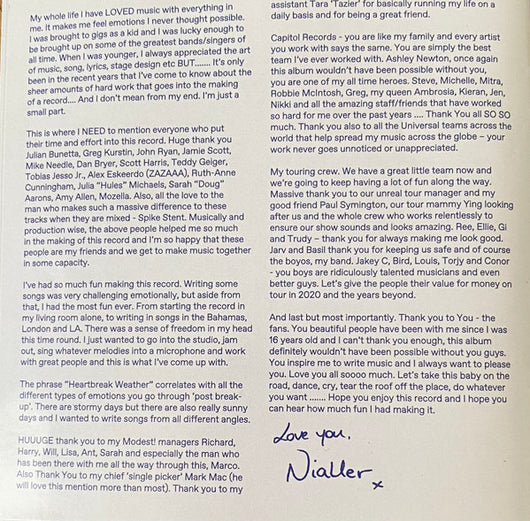 My whole life I have LOVED music with everything in
me. It makes me feel emotions I never thought possible.
I was brought to gigs as a kid and I was lucky enough to
be brought up on some of the greatest bands/singers of
all time. When I was younger, I always appreciated the art
of music, song, lyrics, stage design etc BUT........ It's only
been in the recent years that I've come to know about the
sheer amounts of hard work that goes into the making
of a record.... And I don't mean from my end. I'm just a
small part.
This is where I NEED to mention everyone who put
their time and effort into this record. Huge thank you
Julian Bunetta, Greg Kurstin, John Ryan, Jamie Scott,
Mike Needle, Dan Bryer, Scott Harris, Teddy Geiger,
Tobias Jesso Jr., Alex Eskeerdo (ZAZAAA), Ruth-Anne
Cunningham, Julia "Hules" Michaels, Sarah "Doug"
Aarons, Amy Allen, Mozella. Also, all the love to the
man who makes such a massive difference to these
tracks when they are mixed - Spike Stent. Musically and
production wise, the above people helped me so much
in the making of this record and I'm so happy that these
people are my friends and we get to make music together
in some capacity.
I've had so much fun making this record. Writing some
songs was very challenging emotionally, but aside from
that, I had the most fun ever. From starting the record in
my living room alone, to writing in songs in the Bahamas,
London and LA. There was a sense of freedom in my head
this time round. I just wanted to go into the studio, jam
out, sing whatever melodies into a microphone and work
with great people and this is what I've come up with.
The phrase "Heartbreak Weather" correlates with all the
different types of emotions you go through 'post break-
up'. There are stormy days but there are also really sunny
days and I wanted to write songs from all different angles.
HUUUGE thank you to my Modest! managers Richard,
Harry, Will, Lisa, Ant, Sarah and especially the man who
has been there with me all the way through this, Marco.
Also Thank You to my chief 'single picker' Mark Mac (he
will love this mention more than most). Thank you to my
assistant Tara 'Tazier' for basically running my life on a
daily basis and for being a great friend.
Capitol Records - you are like my family and every artist
you work with says the same. You are simply the best
team I've ever worked with. Ashley Newton, once again
this album wouldn't have been possible without you,
you are one of my all time heroes. Steve, Michelle, Mitra,
Robbie McIntosh, Greg, my queen Ambrosia, Kieran, Jen,
Nikki and all the amazing staff/friends that have worked
so hard for me over the past years .... Thank You all SO SO
much. Thank you also to all the Universal teams across the
world that help spread my music across the globe – your
work never goes unnoticed or unappreciated.
My touring crew. We have a great little team now and
we're going to keep having a lot of fun along the way.
Massive thank you to our unreal tour manager and my
good friend Paul Symington, our tour mammy Ying looking
after us and the whole crew who works relentlessly to
ensure our show sounds and looks amazing. Ree, Ellie, Gi
and Trudy – thank you for always making me look good.
Jarv and Basil thank you for keeping us safe and of course
the boyos, my band. Jakey C, Bird, Louis, Torjy and Conor
- you boys are ridiculously talented musicians and even
better guys. Let's give the people their value for money on
tour in 2020 and the years beyond.
And last but most importantly. Thank you to You - the
fans. You beautiful people have been with me since I was
16 years old and I can't thank you enough, this album
definitely wouldn't have been possible without you guys.
You inspire me to write music and I always want to please
you. Love you all soooo much. Let's take this baby on the
road, dance, cry, tear the roof off the place, do whatever
you want ....... Hope you enjoy this record and I hope you
can hear how much fun I had making it.
Love you,
Nialler
x